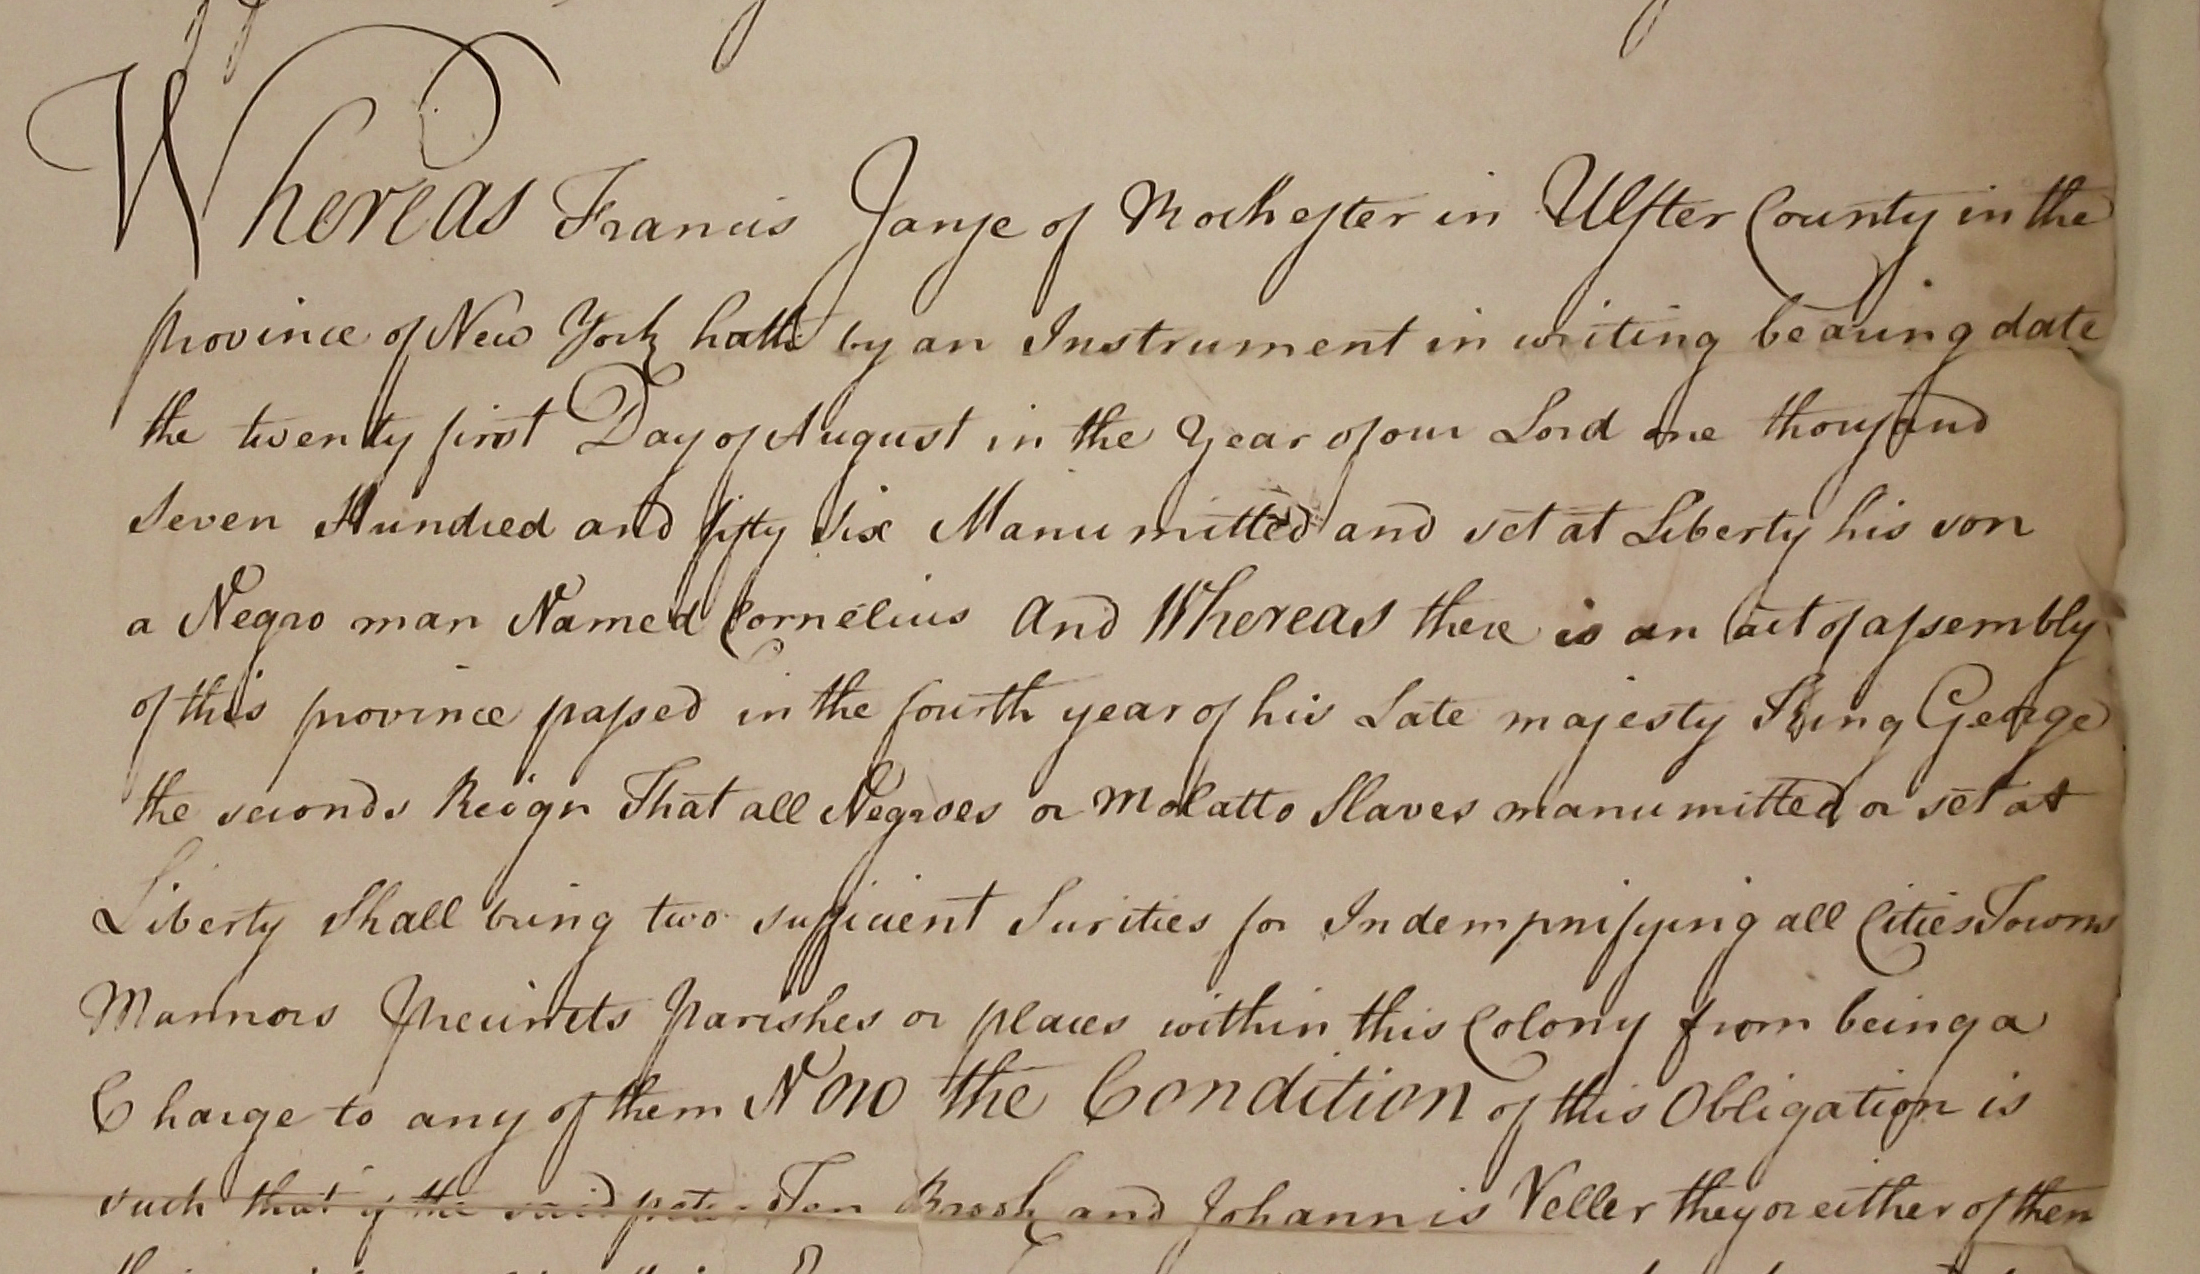 Whereas Francis Janse of Mochester in Ulster County in the
province of New York hath by an Instrument in writing bearing date
the twenty first Day of August in the Year of our Lord one thousand
seven Hundred and fifty six Manumitted and set at Liberty his son
a Negro man Named Cornelius And Whereas there is an act of assembly
of this province passed in the fourth year of his Late majesty King George
the seconds Reign That all Negroes or Molatto Slaves manumitted or set at
Liberty Shall bring two sufficient Surities for Indempnifying all Cities Towns
Mannors Precincts Parishes or places within this Colony from being a
Charge to any of them Now the Condition of this Obligation is
such that if the said peter Ten Brook and Johannis Veller they or either of them